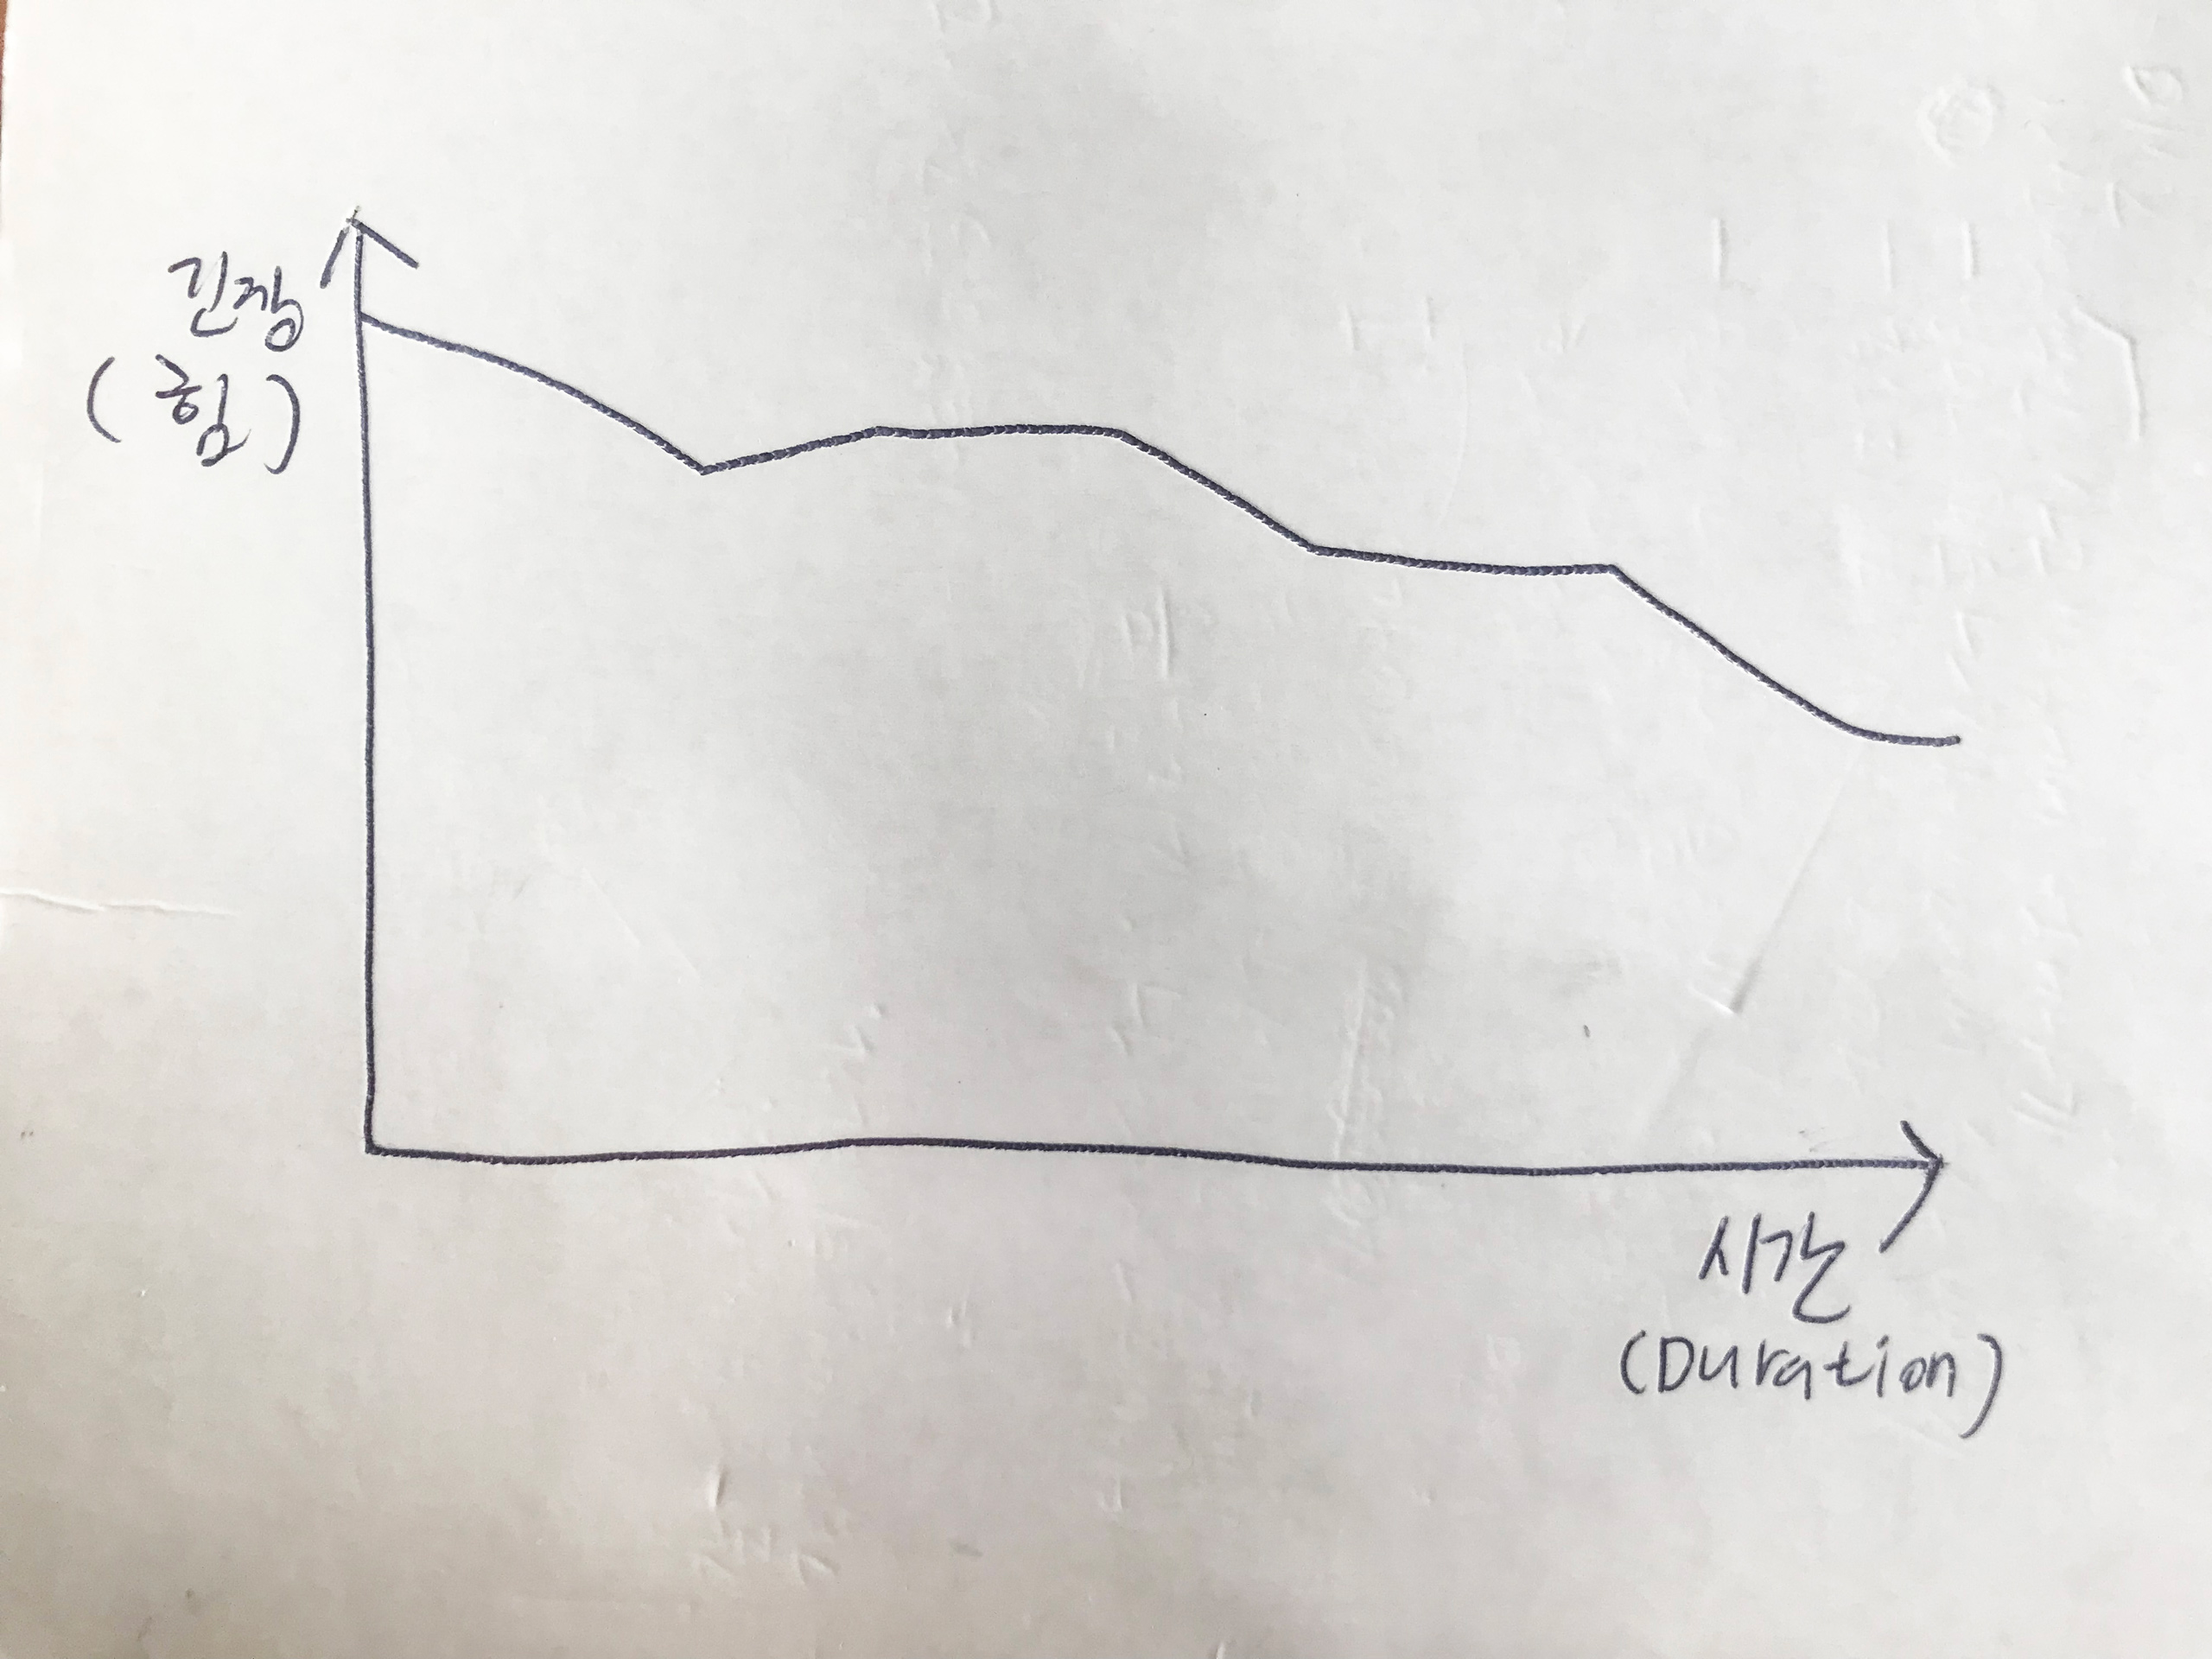 긴장
(힘)
시간
(Duration)